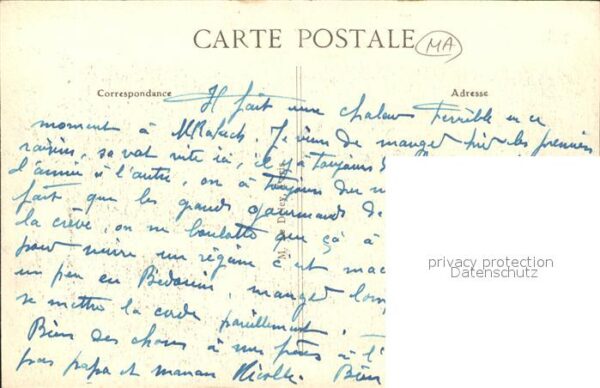 CARTE POSTALE
MA
Correspondance
Adresse
Il fait une chaleur terrible en ce
moment à MRakech. Je viens de manger les premiers
raisins, sa vat vite ici, il y a toujours
d'année à l'autre, on a toujours du
fait que les grands gourmands de
la crève, on ne boulotte que ça à
pour suivre un régime c'est
un peu en Bédouins, manger
se mettre la corde pareillement.
Bien des choses à mes frères à l'
pas papa et maman Nicolle. Bien
privacy protection
Datenschutz